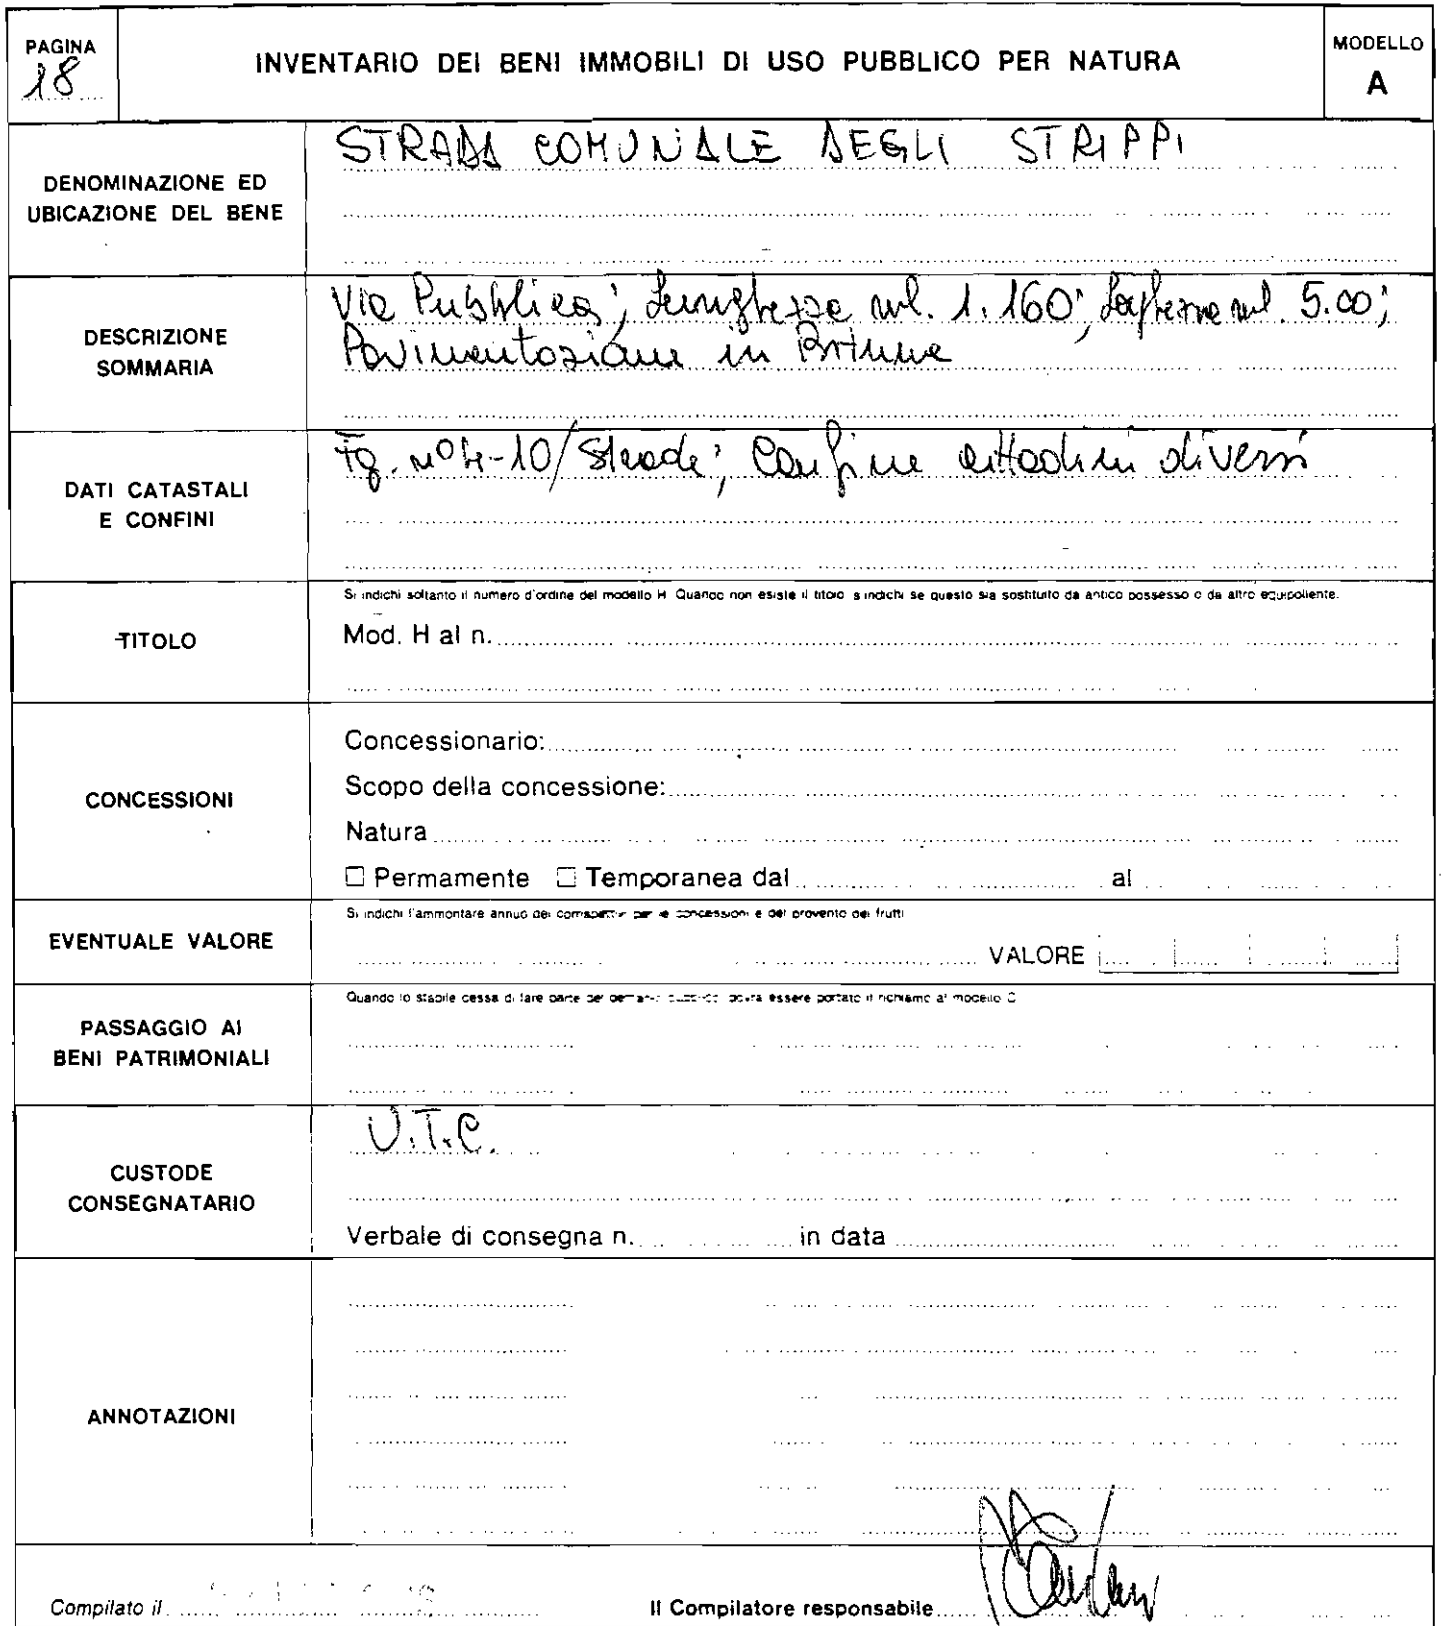 PAGINA
18
INVENTARIO DEI BENI IMMOBILI DI USO PUBBLICO PER NATURA
MODELLO
A
DENOMINAZIONE ED
UBICAZIONE DEL BENE
STRADA COMUNALE DEGLI STRIPPI
DESCRIZIONE
SOMMARIA
Via Pubblica; Lunghezza ml. 1.160; Larghezza ml. 5.00;
Pavimentazione in Bitume
DATI CATASTALI
E CONFINI
Fg. n° 4-10/Strade; Confine cittadini diversi
TITOLO
Si indichi soltanto il numero d'ordine del modello H. Quando non esiste il titolo s'indichi se questo sia sostituito da antico possesso o da altro equipollente.
Mod. H al n.
CONCESSIONI
Concessionario:
Scopo della concessione:
Natura
☐ Permamente ☐ Temporanea dal al
EVENTUALE VALORE
Si indichi l'ammontare annuo dei corrispettivi per le concessioni e del provento dei frutti
VALORE
PASSAGGIO AI
BENI PATRIMONIALI
Quando lo stabile cessa di fare parte del demanio pubblico dovrà essere portato il richiamo al modello C
CUSTODE
CONSEGNATARIO
U.T.C.
Verbale di consegna n. in data
ANNOTAZIONI
Compilato il
Il Compilatore responsabile